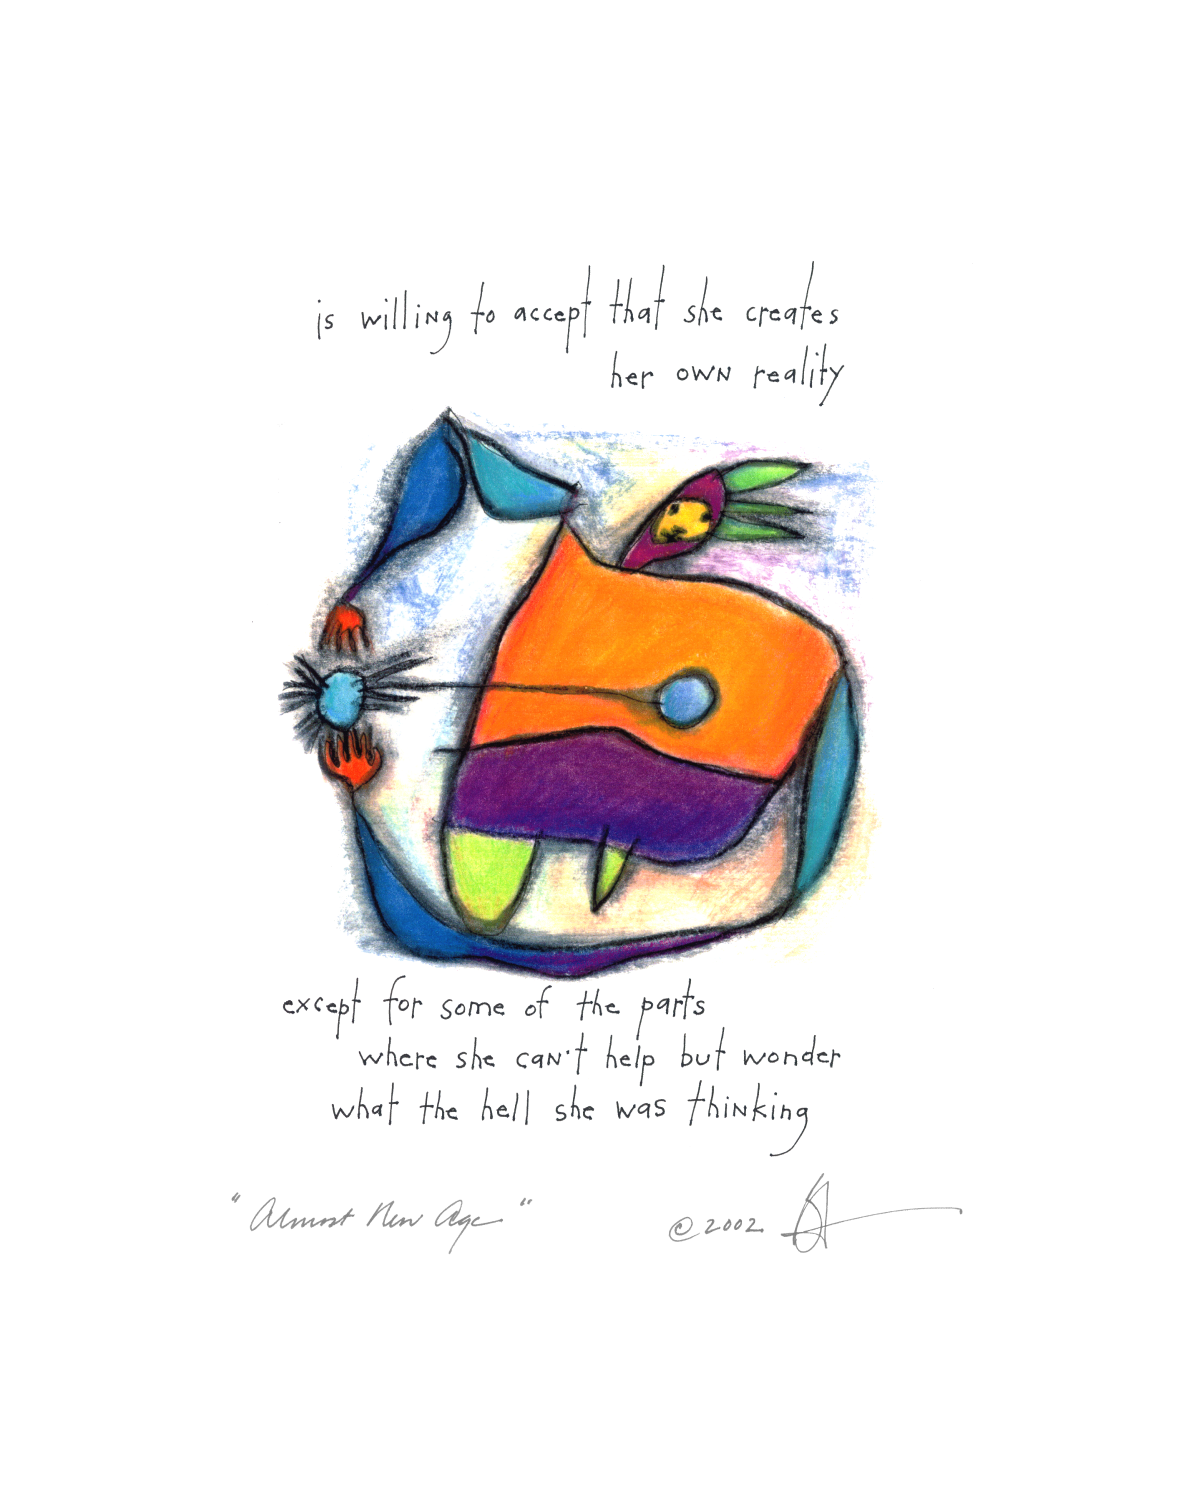 is willing to accept that she creates
her own reality
except for some of the parts
where she can't help but wonder
what the hell she was thinking
"Almost New Age" ©2002